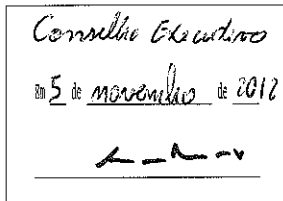 Conselho Executivo
Em 5 de novembro de 2012